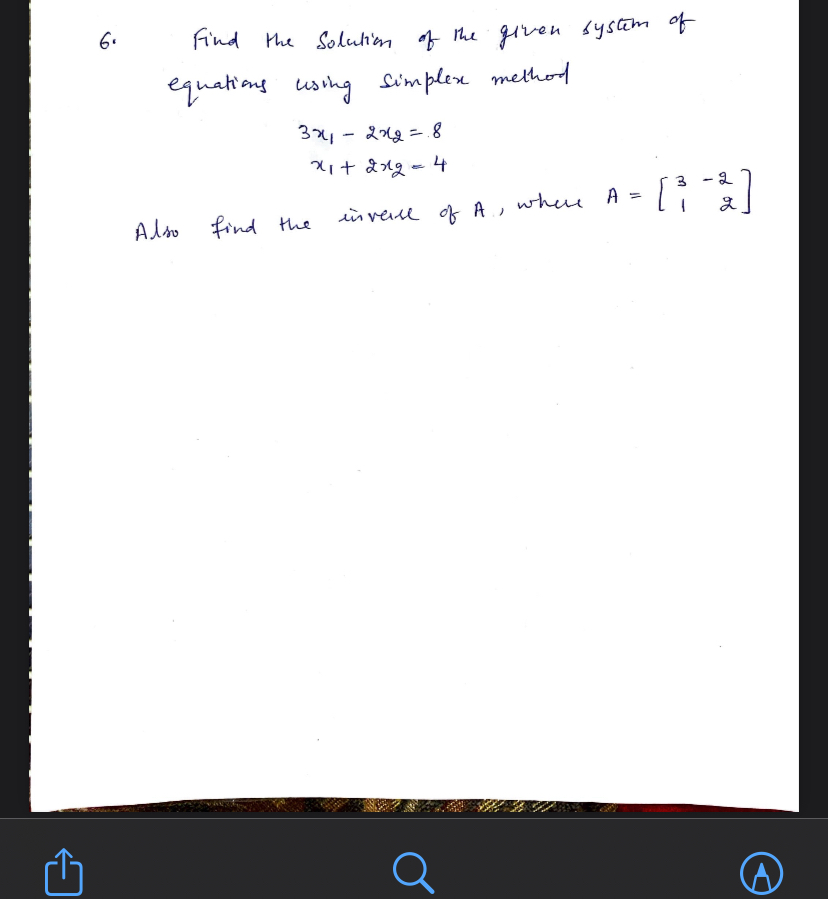 6. Find the Solution of the given system of
equations using Simplex method
3x₁ - 2x₂ = 8
x₁ + 2x₂ = 4
Also find the inverse of A, where A = [3 -2
1 2]